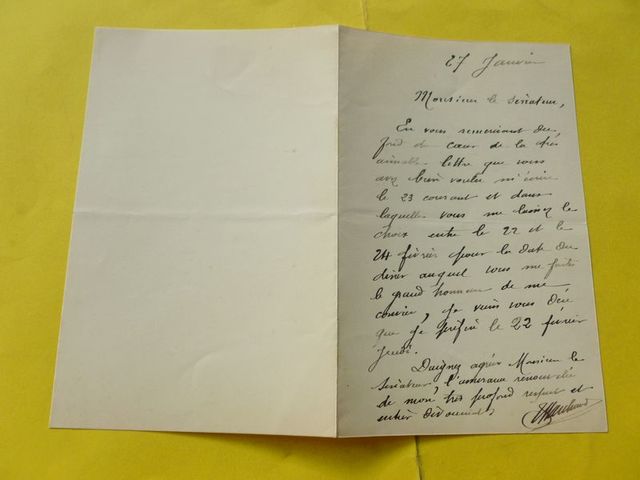 27 Janvier
Monsieur le Sénateur,
En vous remerciant du
fond de cœur de la très
aimable lettre que vous
avez bien voulu m'écrire
le 23 courant et dans
laquelle vous me laissez le
choix entre le 22 et le
24 février pour la date du
dîner auquel vous me faites
le grand honneur de me
convier, je viens vous dire
que je préfère le 22 février
jeudi.
Daignez agréer Monsieur le
Sénateur, l'assurance renouvelée
de mon très profond respect et
entier dévouement